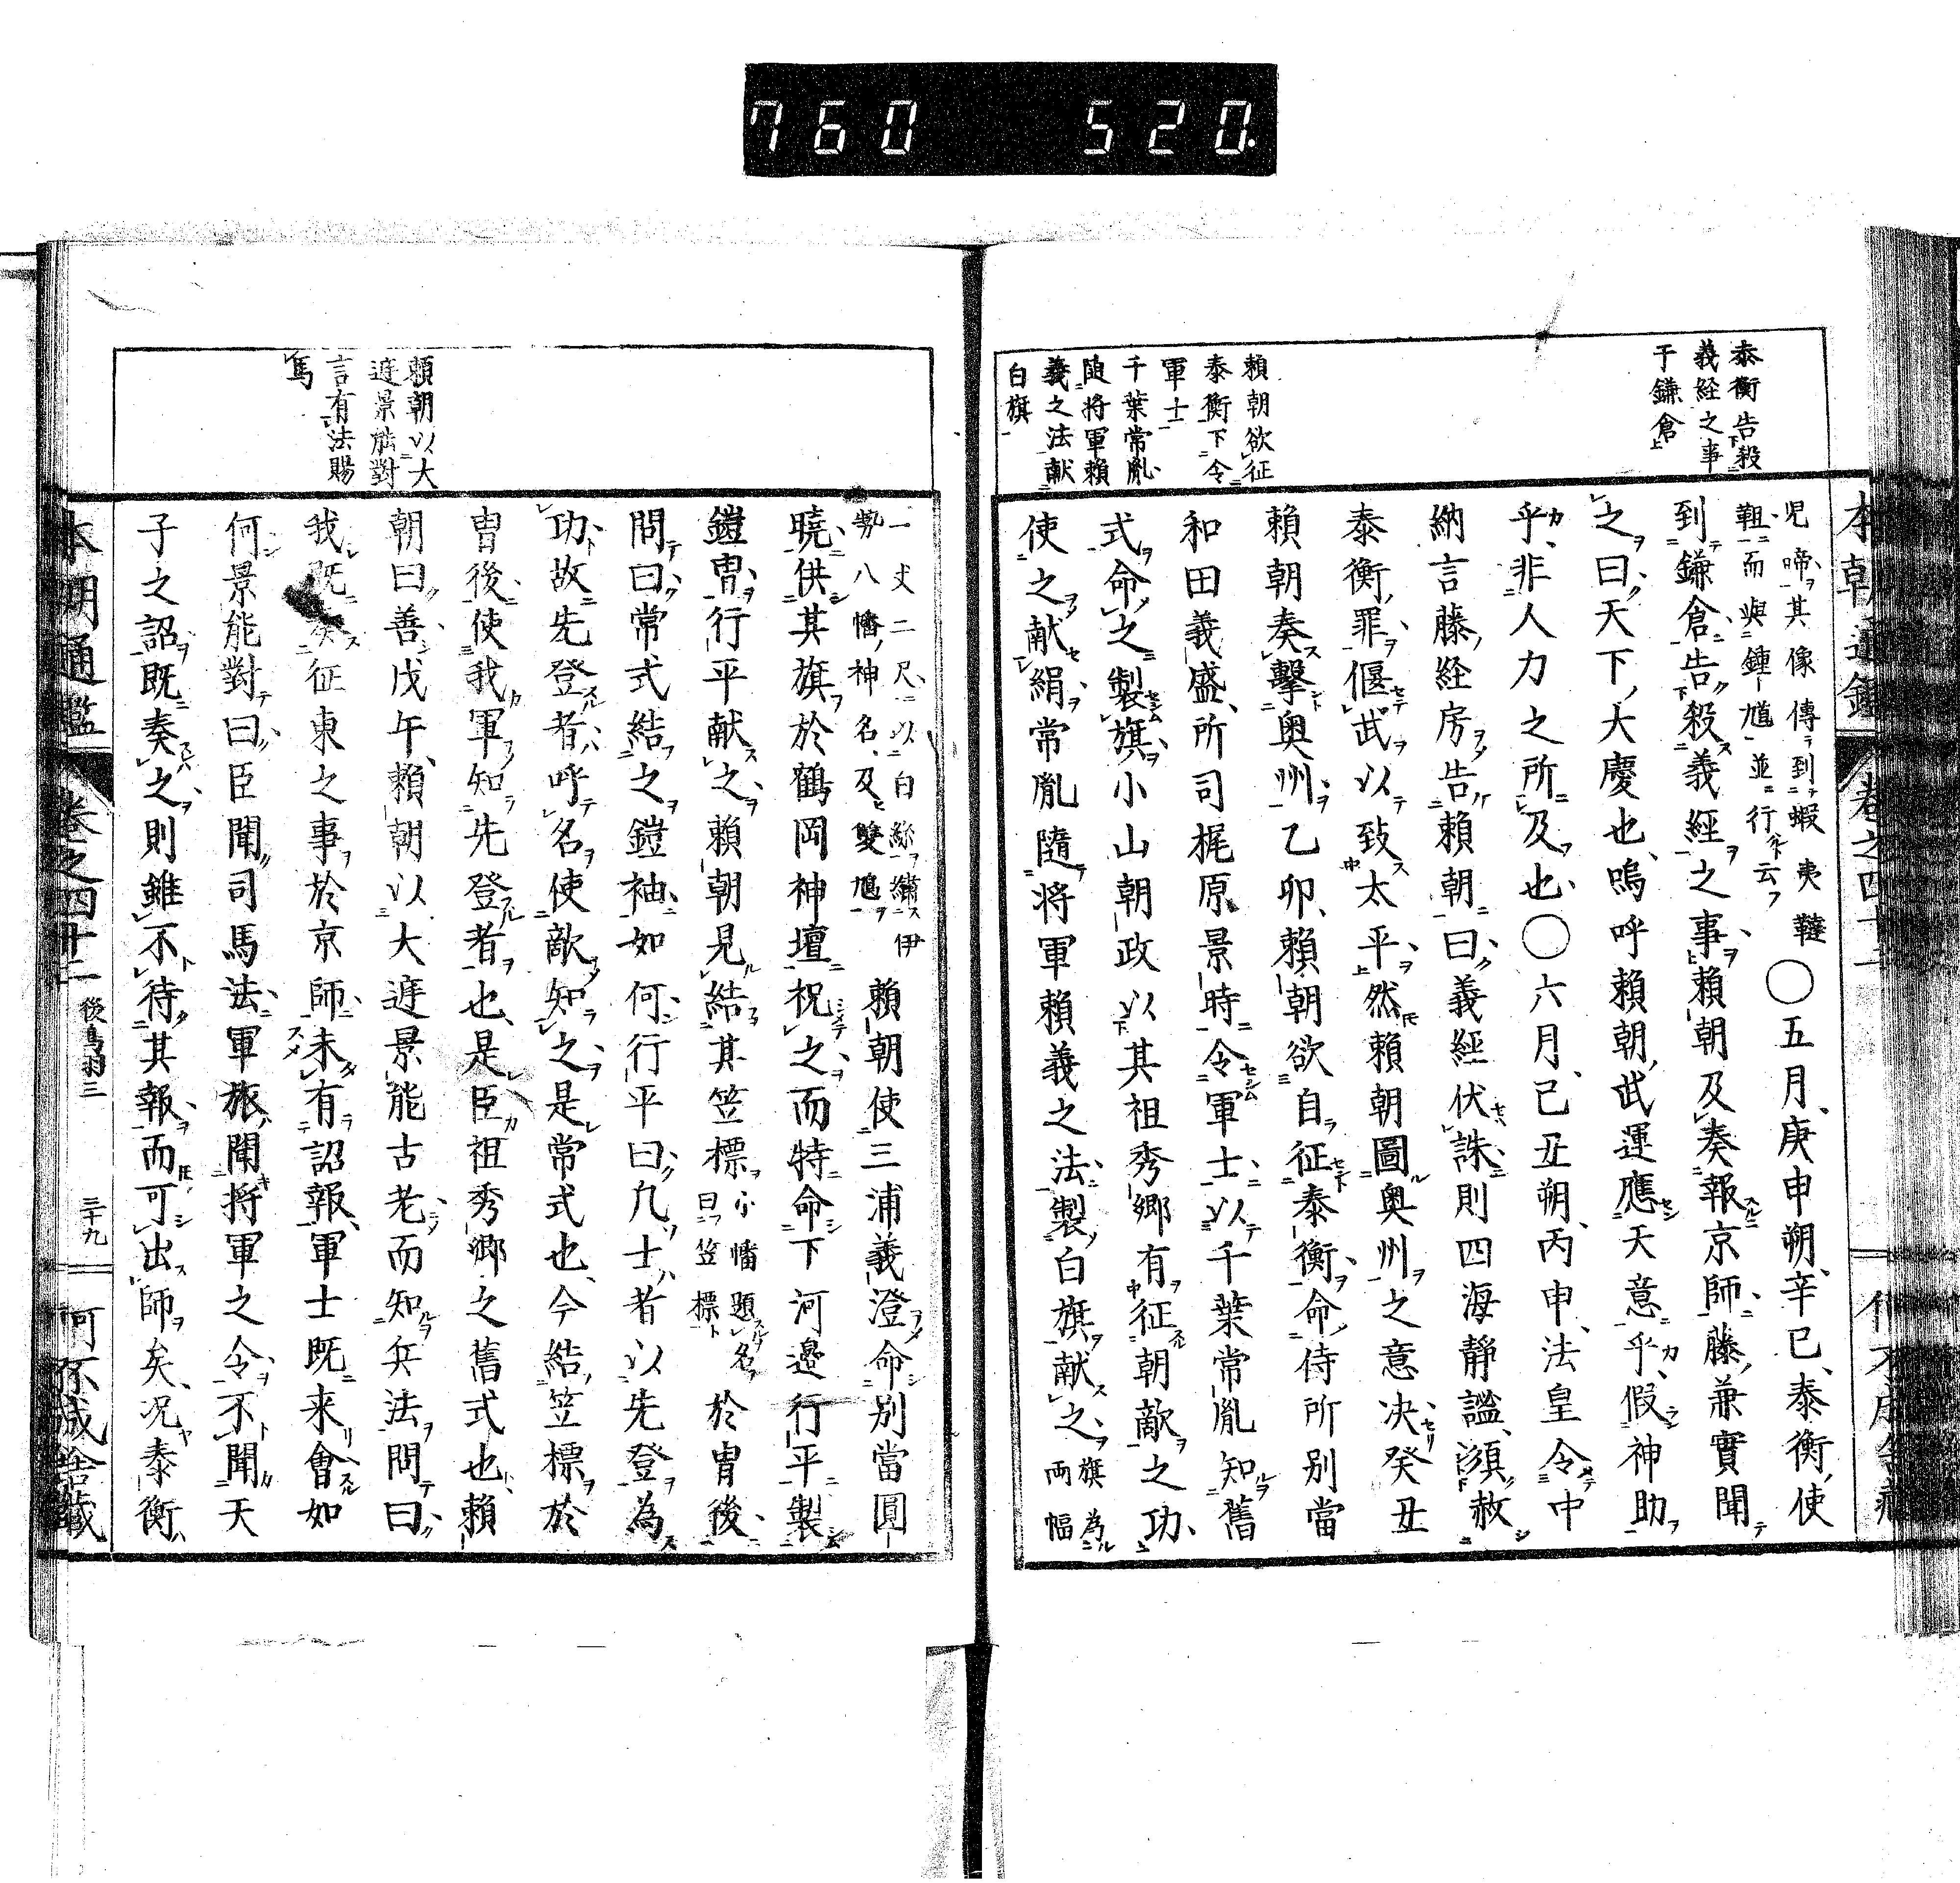 760 520.
泰衡告殺
義経之事
于鎌倉
頼朝欲征
泰衡下令
軍士
千葉常胤
随将軍頼
義之法献
白旗
児啼其像傳到蝦夷韃
靼而與鍾馗並行云
○五月庚申朔辛巳泰衡使
到鎌倉告殺義經之事頼朝及奏報京師藤兼實聞
之曰天下大慶也嗚呼頼朝武運應天意乎假神助
乎非人力之所及也○六月己丑朔丙申法皇令中
納言藤経房告頼朝曰義經伏誅則四海静謐須赦
泰衡罪偃武以致太平然頼朝圖奥州之意决癸丑
頼朝奏擊奥州乙卯頼朝欲自征泰衡命侍所別當
和田義盛所司梶原景時令軍士以千葉常胤知舊
式命之製旗小山朝政以其祖秀郷有征朝敵之功
使之献絹常胤隨将軍頼義之法製白旗献之
旗為
両幅
一丈二尺以白絲繡伊
勢八幡神名及雙鳩
頼朝使三浦義澄命別當圓
曉供其旗於鶴岡神壇祝之而特命下河邊行平製
鎧冑行平献之頼朝見結其笠標
小幡題名
曰笠標
於冑後
問曰常式結之鎧袖如何行平曰凡士者以先登為
功故先登者呼名使敵知之是常式也今結笠標於
冑後使我軍知先登者也是臣祖秀郷之舊式也頼
朝曰善戊午頼朝以大庭景能古老而知兵法問曰
我既奏征東之事於京師未有詔報軍士既来會如
何景能對曰臣聞司馬法軍旅聞将軍之令不聞天
子之詔既奏之則雖不待其報而可出師矣况泰衡
頼朝以大
庭景能對
言有法賜
馬
本朝通鑑
巻之四十二
後鳥羽三
三十九